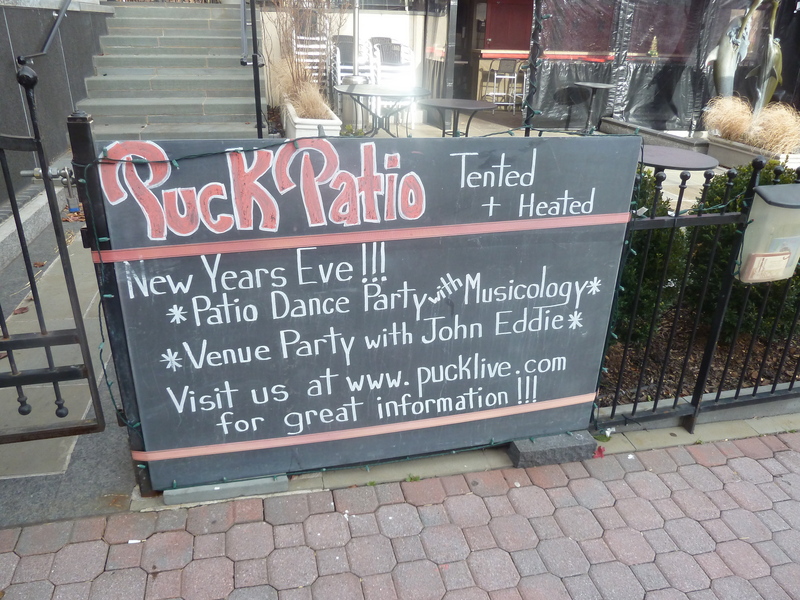 Puck Patio Tented
+ Heated
New Years Eve!!!
*Patio Dance Party with Musicology*
*Venue Party with John Eddie*
Visit us at www.pucklive.com
for great information!!!